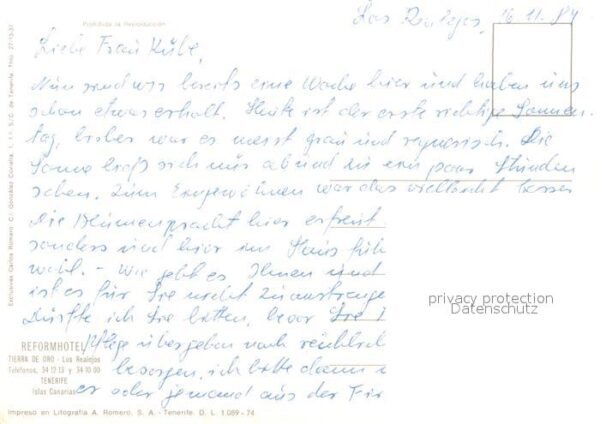 Prohibida la Reproducción
Los Realejos, 16.11.84
Liebe Frau Kübe,
Nun sind wir bereits eine Woche hier und haben uns
schon etwas erholt. Heute ist der erste richtige Sonnen-
tag, bisher war es meist grau und regnerisch. Die
Sonne ließ sich nur ab und zu ein paar Stunden
sehen. Zum Eingewöhnen war das vielleicht besser
Die Blumenpracht hier erfreut
sonders und hier im Haus füh
wohl. - Wie geht es Ihnen und
ist es für Sie nicht zu anstrenge
Dürfte ich Sie bitten, bevor Sie
Pflege übergeben noch reichlich
besorgen, ich bitte dann
er oder jemand aus der Fir
privacy protection
Datenschutz
REFORMHOTEL
TIERRA DE ORO - Los Realejos
Teléfonos, 34 12 13 y 34 10 00
TENERIFE
Islas Canarias
Impreso en Litografía A. Romero, S. A. - Tenerife. D. L. 1.089 - 74
Exclusivas Carlos Romero. C/. González Coviella, 1, 1.º S/C. de Tenerife. Tfno. 27-13-37